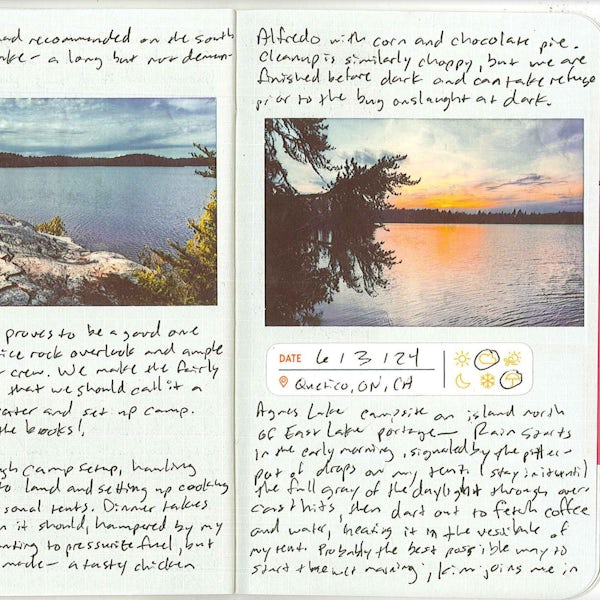 had recommended on the south
lake - a long but not demon-
proves to be a good one
ice rock overlook and ample
r crew. We make the fairly
that we should call it a
eater and set up camp.
the books!,
gh camp setup, hauling
to land and setting up cooking
sonal tents. Dinner takes
n it should, hampered by my
nting to pressurize fuel, but
made - a tasty chicken
Alfredo with corn and chocolate pie.
Cleanup is similarly choppy, but we are
finished before dark and can take refuge
prior to the bug onslaught at dark.
DATE 6/3/24
Quetico, ON, CA
Agnes Lake campsite on island north
of East Lake portage - Rain starts
in the early morning, signaled by the pitter-
pat of drops on my tent. I stay in it until
the full gray of the daylight through over-
cast hits, then dart out to fetch coffee
and water, heating it in the vestibule of
my tent. Probably the best possible way to
start the wet morning; Kim joins me in